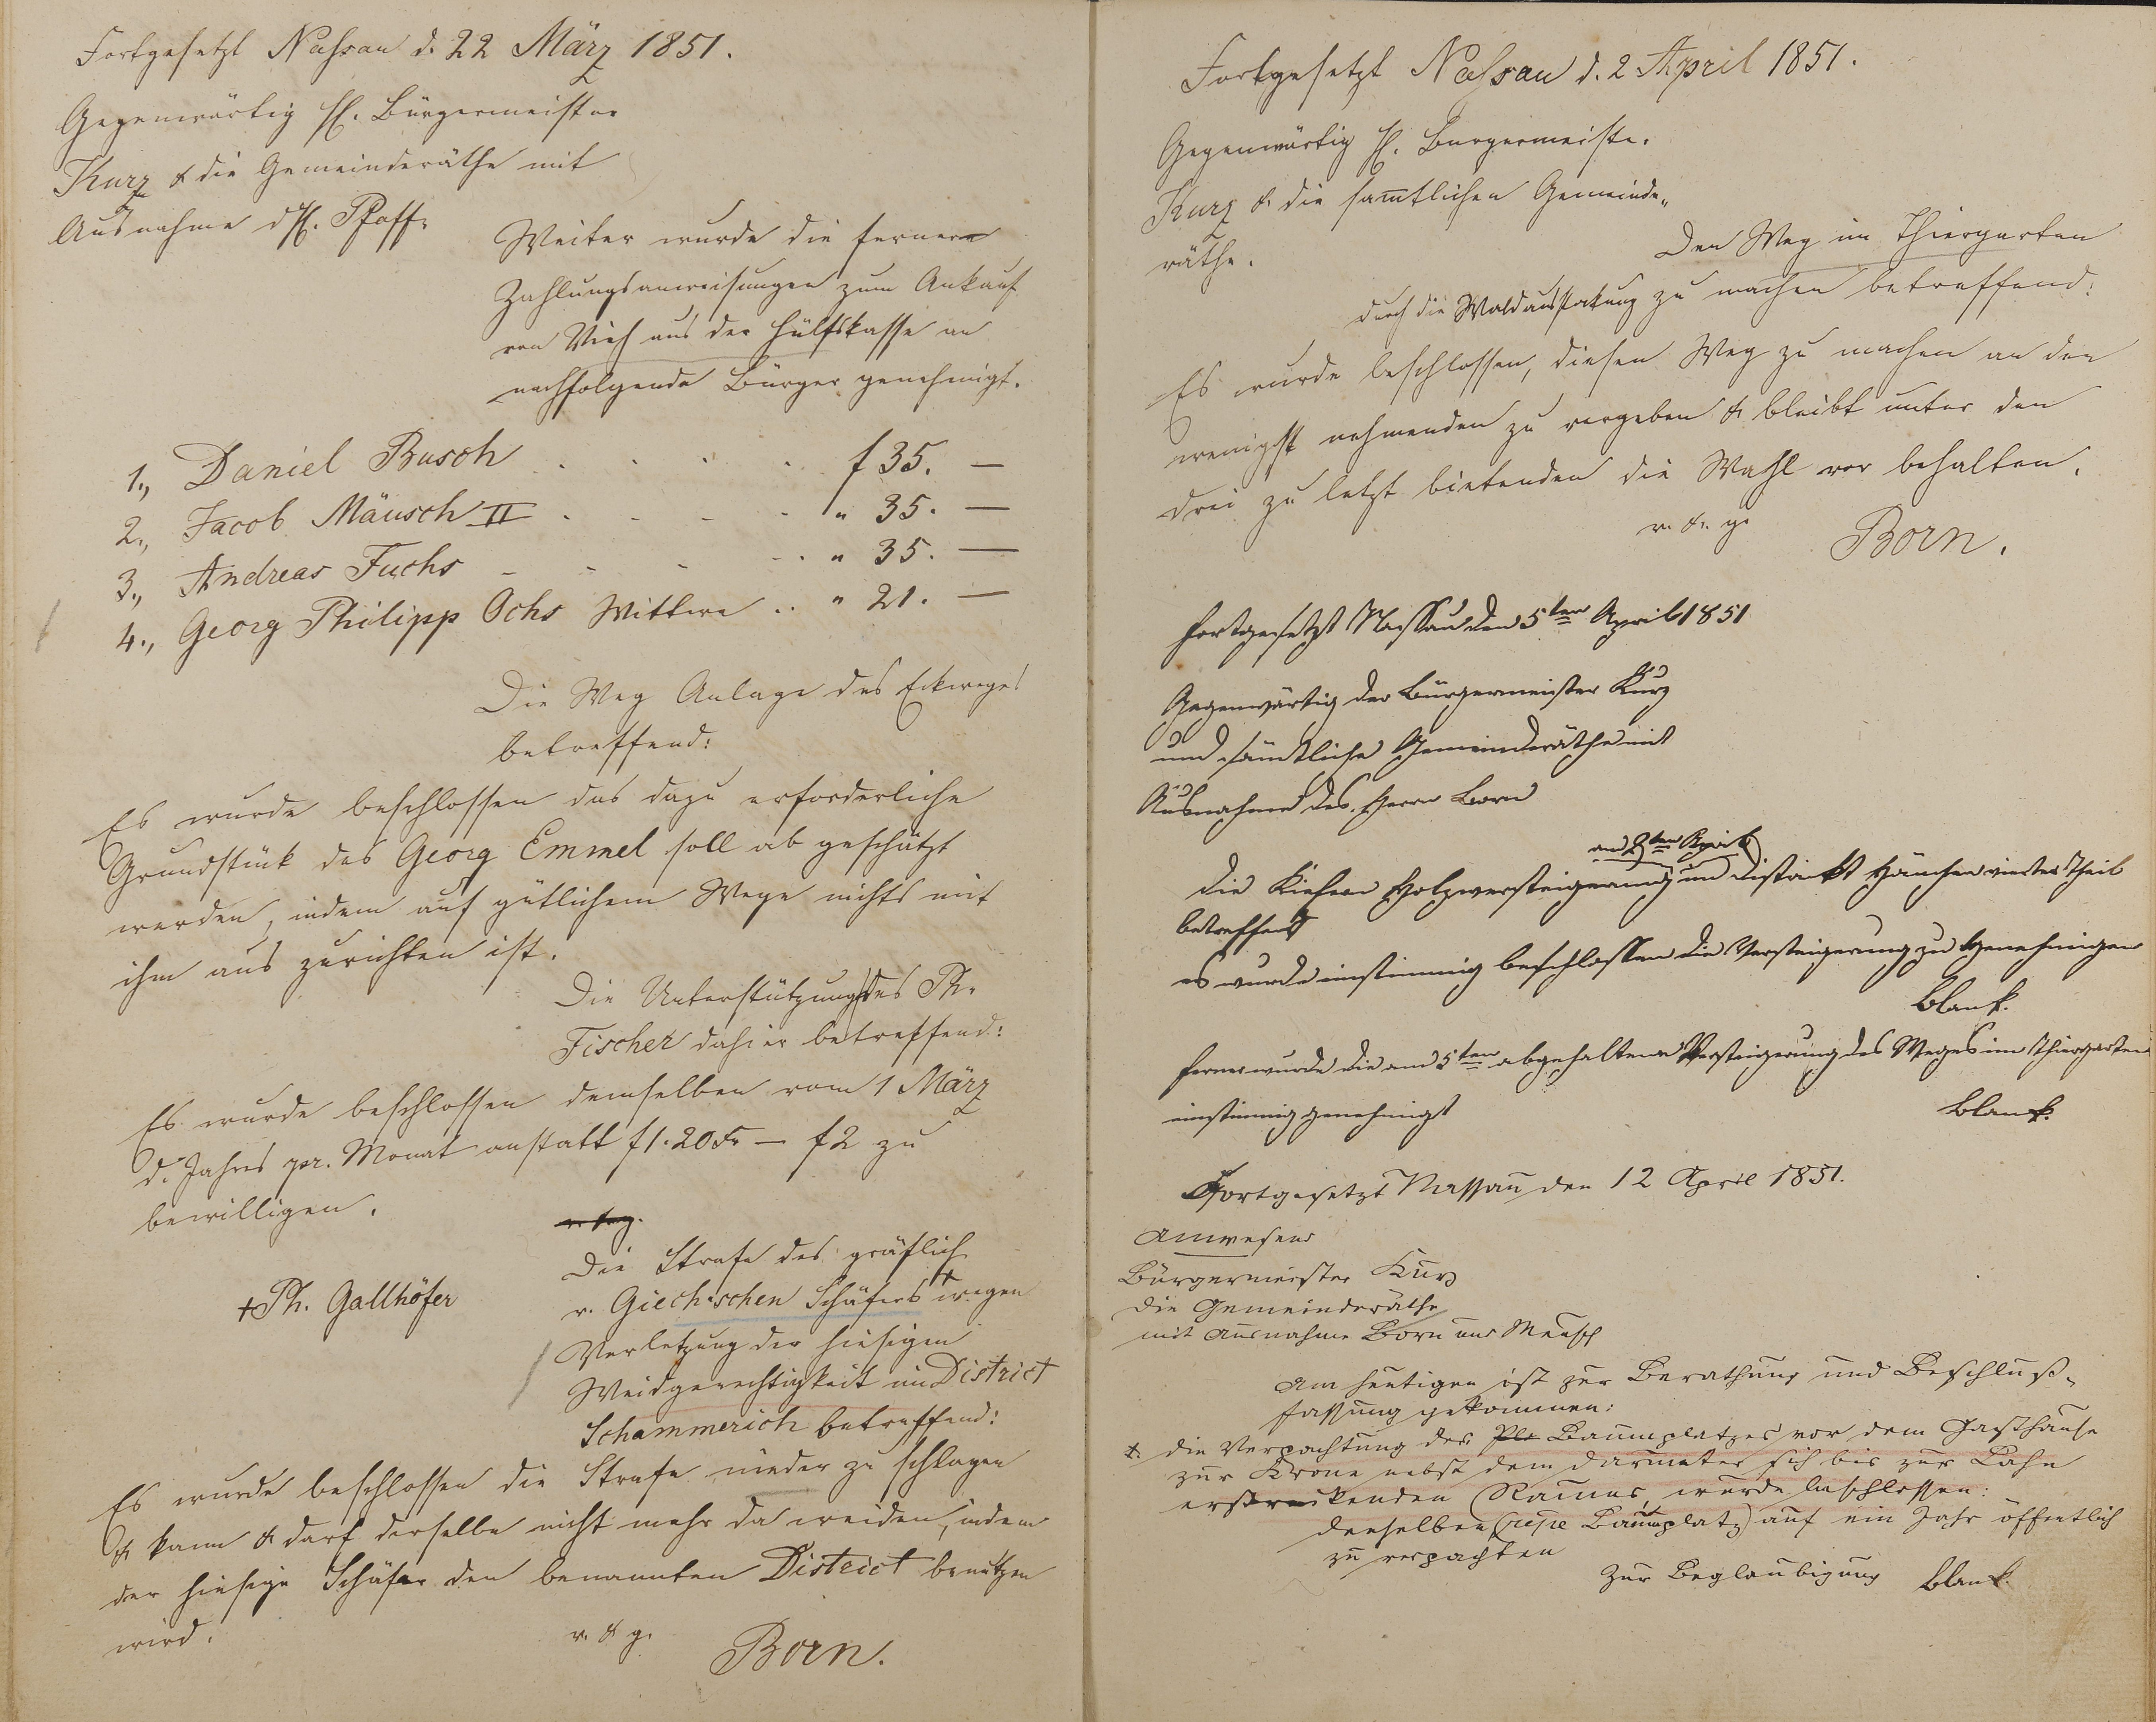 Fortgesetzt Nassau d. 22 März 1851.
Gegenwärtig H. Bürgermeister
Kurz & die Gemeinderäthe mit
Ausnahme d H. Pfaff.
Weiter wurde die fernere
Zahlungsanweisungen zum Ankauf
von Vieh aus der Hülfskasse an
nachfolgende Bürger genehmigt.
1., Daniel Busch . . . . f 35. —
2., Jacob Mäusch II . - - - " 35. —
3., Andreas Fuchs - - - - . " 35. —
4., Georg Philipp Ochs Wittwe .. " 21. —
Die Weg Anlage des Eckweges
betreffend:
Es wurde beschlossen das dazu erforderliche
Grundstük des Georg Emmel soll ab geschätzt
werden, indem auf gütlichem Wege nichts mit
ihm aus zurichten ist.
Die Unterstützung des Ph.
Fischer dahier betreffend:
Es wurde beschlossen demselben vom 1 März
d. Jahres per. Monat anstatt f 1. 20 Xr — f 2 zu
bewilligen.
v. & g.
Die Strafe des gräflich
v. Giechischen Schäfers + wegen
+ Ph. Gallhöfer
Verletzung der hiesigen
Weidgerechtigkeit im District
Schammerich betreffend:
Es wurde beschlossen die Strafe nieder zu schlagen
& kann & darf derselbe nicht mehr da weiden, indem
der hiesige Schäfer den benannten District benutzen
wird.
v. & g.
Born.
Fortgesetzt Nassau d. 2 April 1851.
Gegenwärtig H. Burgermeister
Kurz & die samtlichen Gemeinde„
räthe.
Den Weg im Thiergarten
durch die Waldausstokung zu machen betreffend:
Es wurde beschlossen, diesen Weg zu machen an den
wenigst nehmenden zu vergeben & bleibt unter den
drei zu letzt bietenden die Wahl vor behalten.
v. & g.
Born.
fortgesetzt Nassau den 5ten April 1851
Gegenwärtig der Bürgermeister Kurz
und sämtliche Gemeinderäthe mit
Ausnahme des Herrn Born
am 2ten April
die Kiefern Holzversteigerung im distrikt Hänchen vierter Theil
betreffend
es wurde einstimmig beschlossen die Versteigerung zu Genehmigen
Blank.
ferner wurde die am 5ten abgehaltene Versteigerung des Weges im Thiergarten
einstimmig genehmigt
Blank.
Fortgesetzt Nassau den 12 April 1851.
Anwesend
Bürgermeister Kurz
die Gemeinderäthe
mit Ausnahme Born und Meusch
Am heutigen ist zur Berathung und Beschluß„
fassung gekommen:
+. die Verpachtung des Ple Baumplatzes vor dem Gasthause
zur Krone nebst dem darunter sich bis zur Lahn
erstreckenden Raumes, wurde beschlossen:
denselben Baumplatz) auf ein Jahr öffentlich
zu verpachten
Zur Beglaubigung Blank.